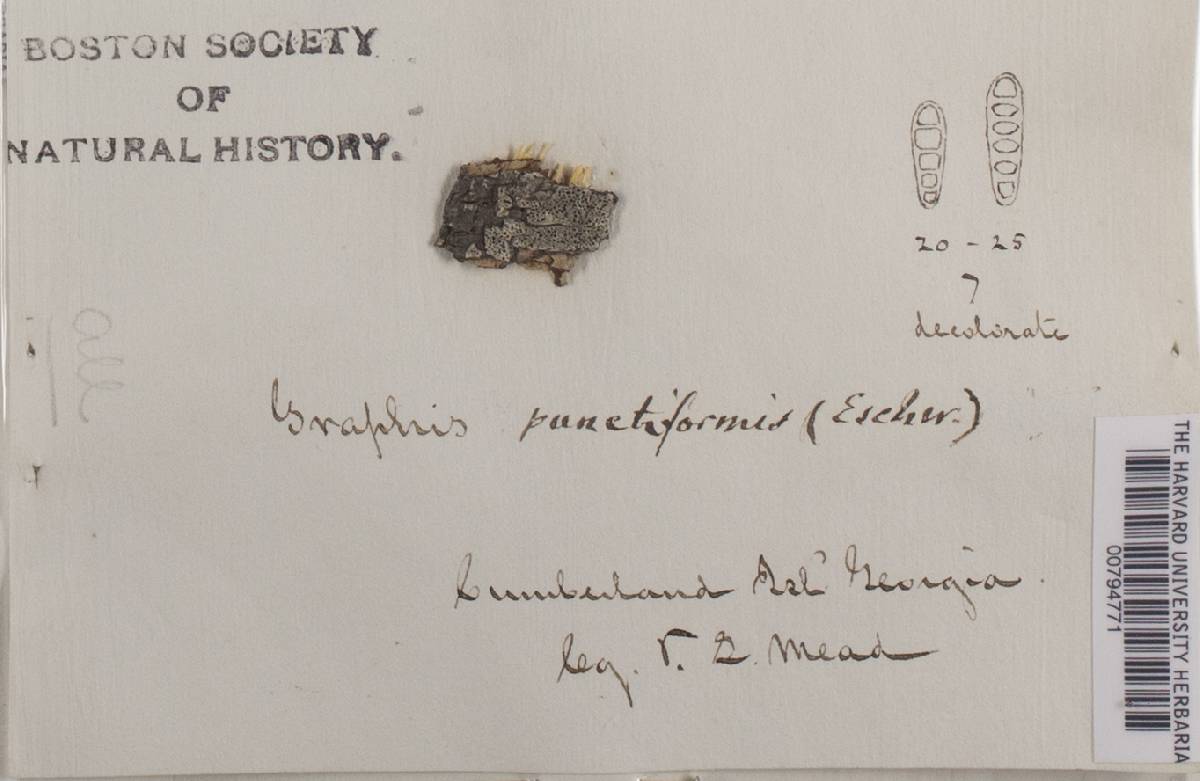 BOSTON SOCIETY
OF
NATURAL HISTORY.
20 - 25
7
decolorate
all
Graphis punctiformis (Eschw.)
Cumberland Isl Georgia.
leg. T. L. Mead
THE HARVARD UNIVERSITY HERBARIA
00794771